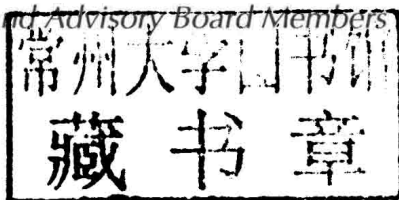 nd Advisory Board Members
常州大学图书馆
藏书章